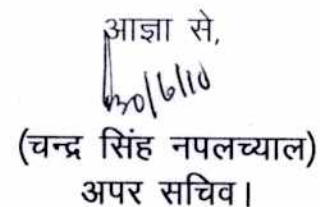 आज्ञा से,
30/6/10
(चन्द्र सिंह नपलच्याल)
अपर सचिव।